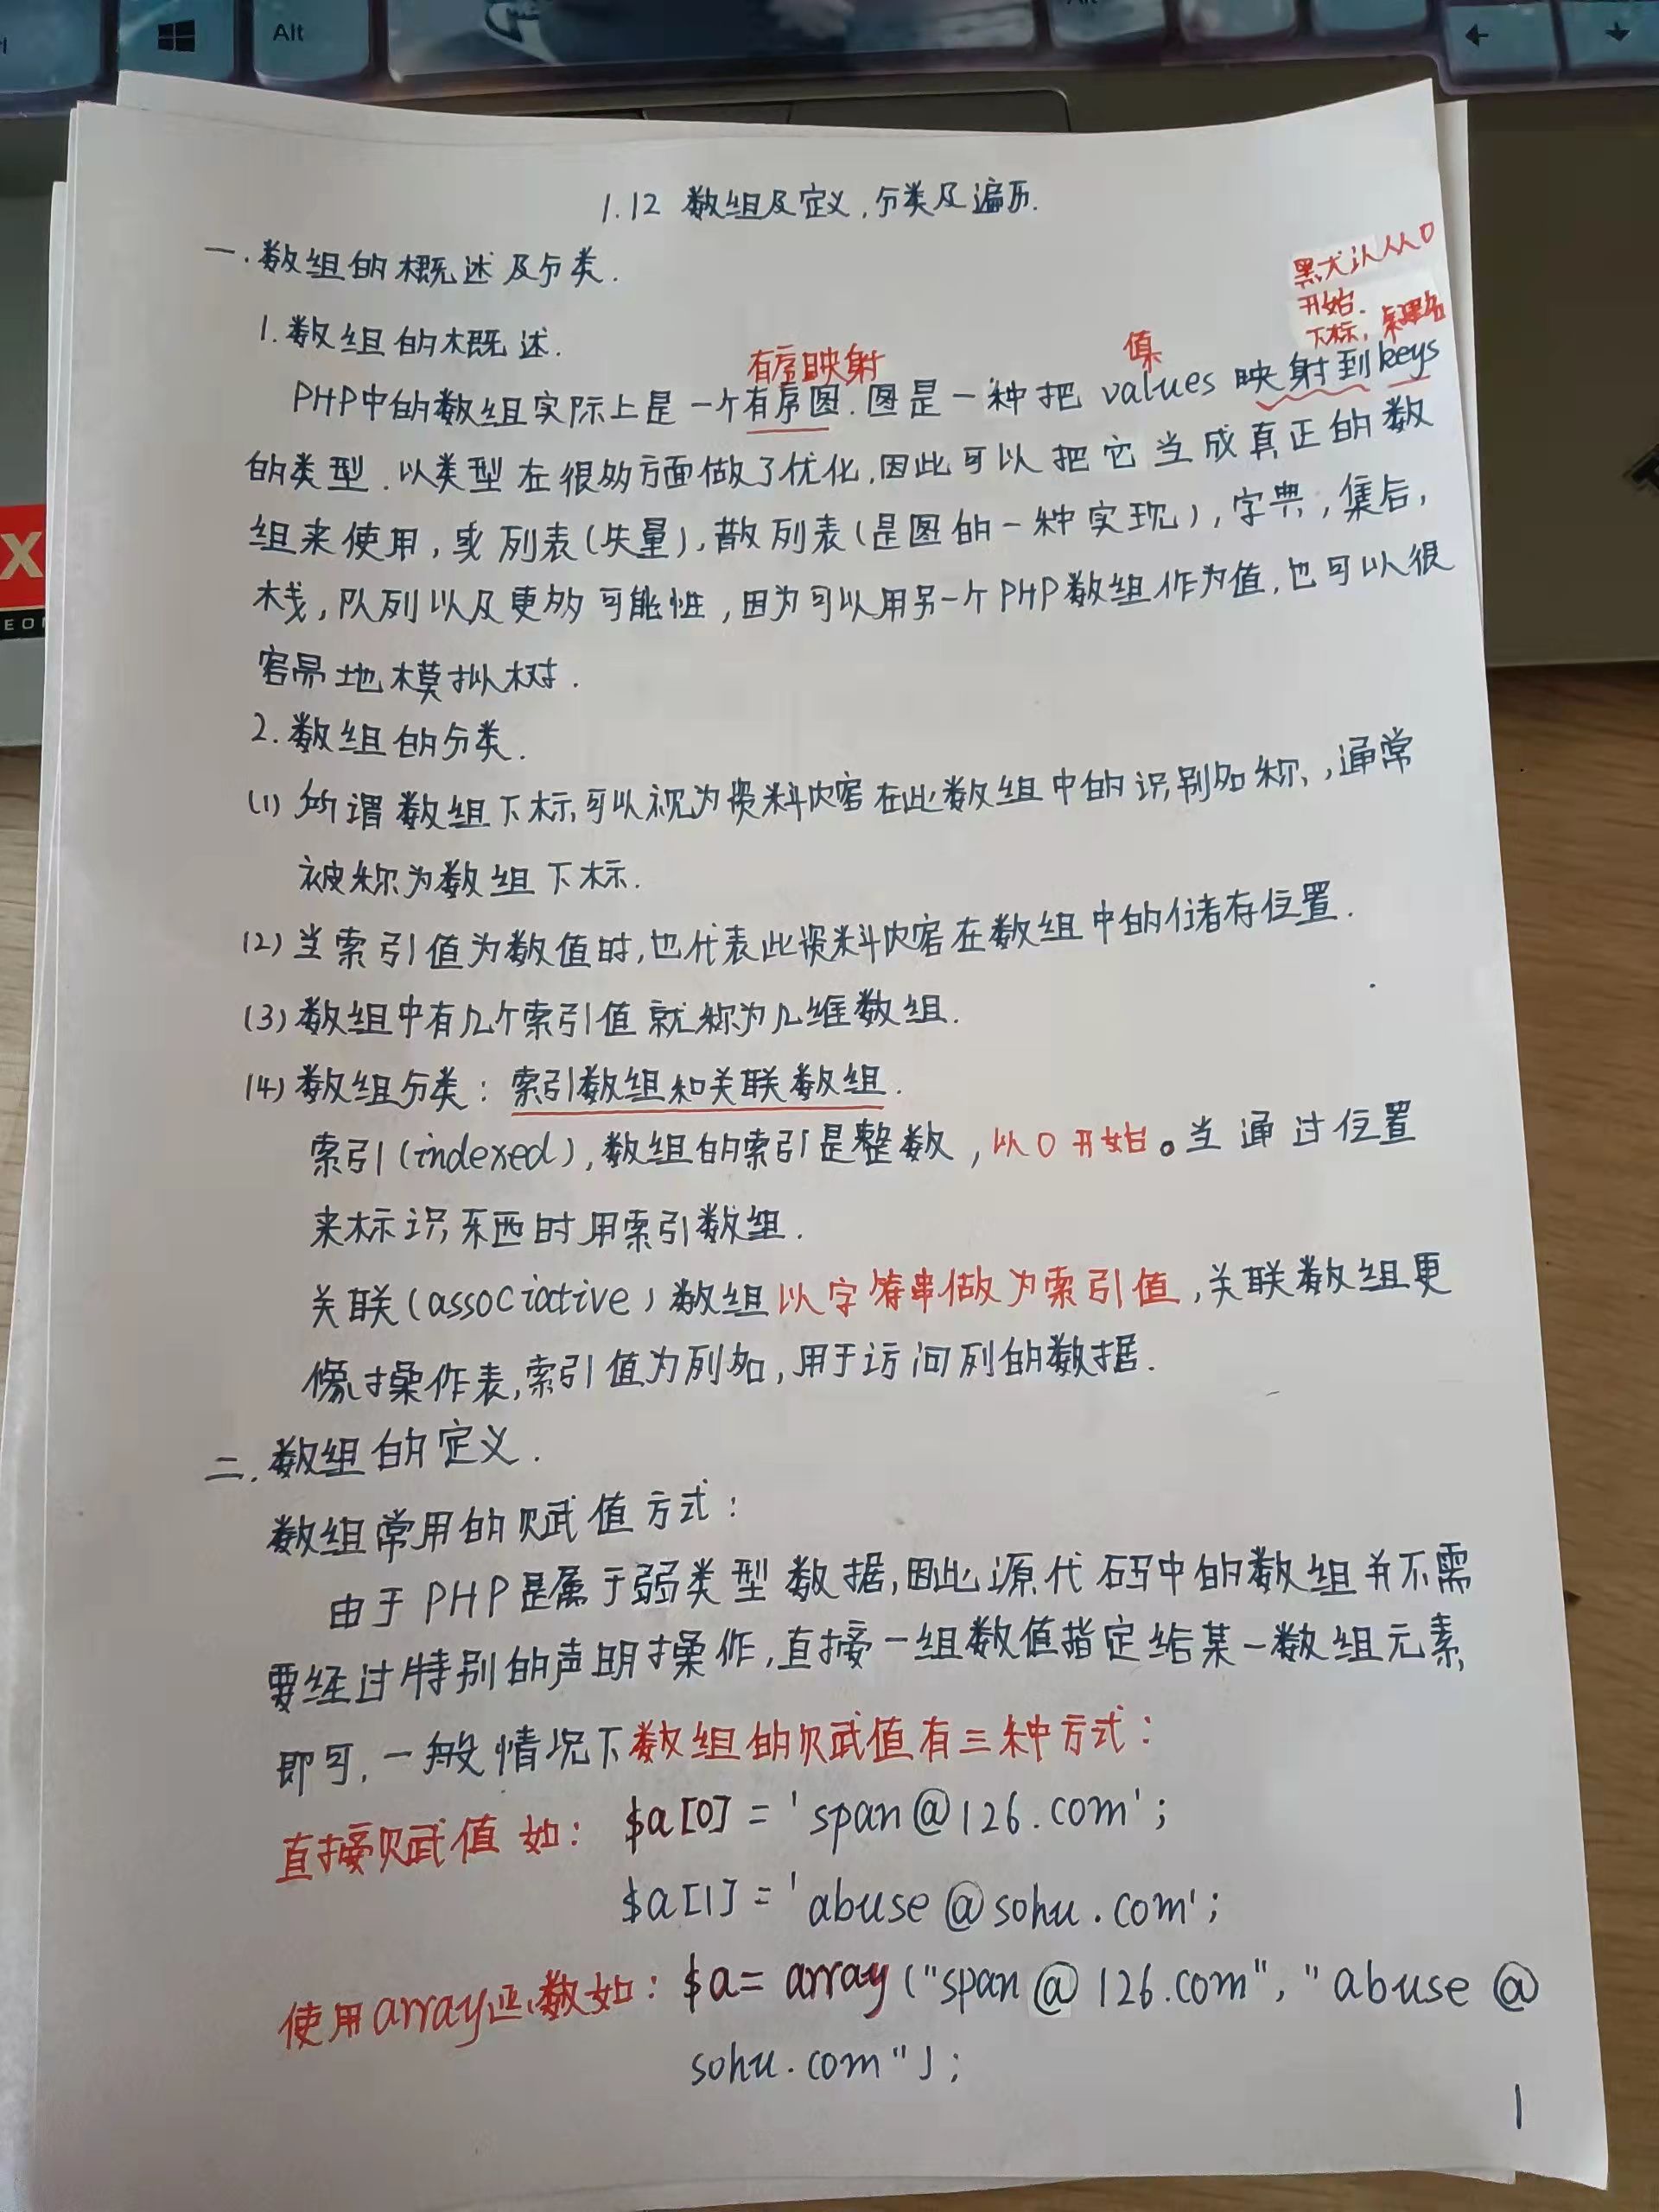 Alt
Alt
1.12 数组及定义,分类及遍历.
一.数组的概述及分类.
默认从0
开始.
下标,
1.数组的概述.
有序映射
值
PHP中的数组实际上是一个有序图.图是一种把 values 映射到keys
的类型.以类型在很多方面做了优化,因此可以把它当成真正的数
组来使用,或列表(失量),散列表(是图的一种实现),字典,集后,
栈,队列以及更多可能性,因为可以用另一个PHP数组作为值,也可以很
容易地模拟树.
2.数组的分类.
(1) 所谓数组下标,可以视为资料内容在此数组中的识别名称,,通常
被称为数组下标.
(2)当索引值为数值时,也代表此资料内容在数组中的储存位置.
(3)数组中有几个索引值就称为几维数组.
(4)数组分类:索引数组和关联数组.
索引(indexed),数组的索引是整数,以0开始。当通过位置
来标识东西时用索引数组.
关联(associative)数组以字符串做为索引值,关联数组更
像操作表,索引值为列名,用于访问列的数据.
二.数组的定义.
数组常用的赋值方式:
由于PHP是属于弱类型数据,因此源代码中的数组并不需
要经过特别的声明操作,直接一组数值指定给某一数组元素
即可,一般情况下数组的赋值有三种方式:
直接赋值 如: $a[0] = 'span@126.com';
$a[1] = 'abuse@sohu.com';
使用array函数如: $a= array ("span@126.com", "abuse@
sohu.com");
1